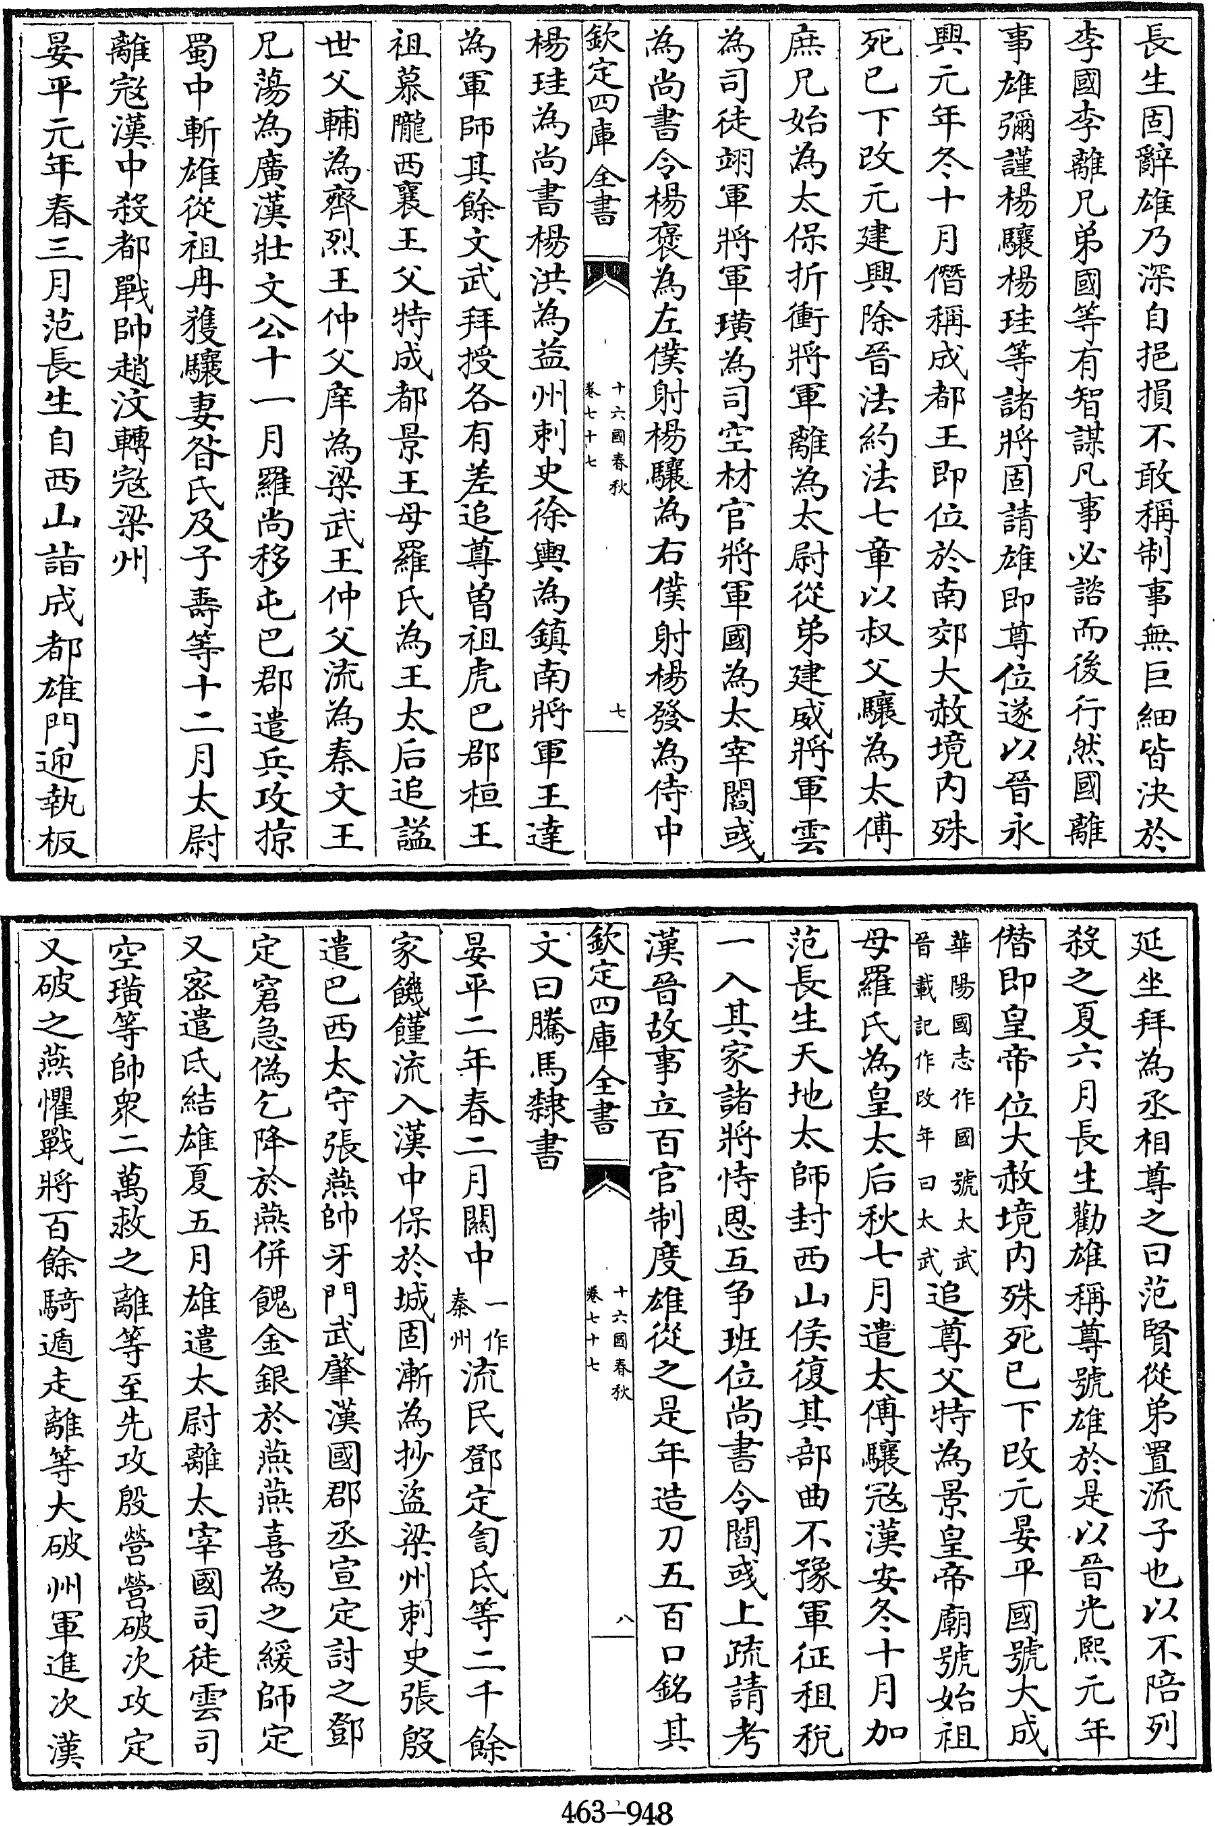 長生固辭雄乃深自挹損不敢稱制事無巨細皆決於
李國李離兄弟國等有智謀凡事必諮而後行然國離
事雄彌謹楊驤楊珪等諸將固請雄即尊位遂以晉永
興元年冬十月僭稱成都王即位於南郊大赦境内殊
死已下改元建興除晉法約法七章以叔父驤為太傅
庶兄始為太保折衝將軍離為太尉從弟建威將軍雲
為司徒翊軍將軍璜為司空材官將軍國為太宰閻彧
為尚書令楊褒為左僕射楊驤為右僕射楊發為侍中
欽定四庫全書
十六國春秋
卷七十七
七
楊珪為尚書楊洪為益州刺史徐輿為鎮南將軍王達
為軍師其餘文武拜授各有差追尊曽祖虎巴郡桓王
祖慕隴西襄王父特成都景王母羅氏為王太后追謚
世父輔為齊烈王仲父庠為梁武王仲父流為秦文王
兄蕩為廣漢壯文公十一月羅尚移屯巴郡遣兵攻掠
蜀中斬雄從祖冉獲驤妻昝氏及子壽等十二月太尉
離宼漢中殺都戰帥趙汶轉宼梁州
晏平元年春三月范長生自西山詣成都雄門迎執板
延坐拜為丞相尊之曰范賢從弟置流子也以不陪列
殺之夏六月長生勸雄稱尊號雄於是以晉光熙元年
僭即皇帝位大赦境内殊死已下改元晏平國號大成
華陽國志作國號太武
晉載記作改年曰太武
追尊父特為景皇帝廟號始祖
母羅氏為皇太后秋七月遣太傅驤宼漢安冬十月加
范長生天地太師封西山侯復其部曲不豫軍征租税
一入其家諸將恃恩互争班位尚書令閻彧上疏請考
漢晉故事立百官制度雄從之是年造刀五百口銘其
欽定四庫全書
十六國春秋
卷七十七
八
文曰騰馬隸書
晏平二年春二月關中
一作
秦州
流民鄧定訇氐等二千餘
家饑饉流入漢中保於城固漸為抄盜梁州刺史張殷
遣巴西太守張燕帥牙門武肇漢國郡丞宣定討之鄧
定窘急偽乞降於燕併餽金銀於燕燕喜為之緩師定
又密遣氐結雄夏五月雄遣太尉離太宰國司徒雲司
空璜等帥衆二萬救之離等至先攻殷營營破次攻定
又破之燕懼戰將百餘騎遁走離等大破州軍進次漢
463-948